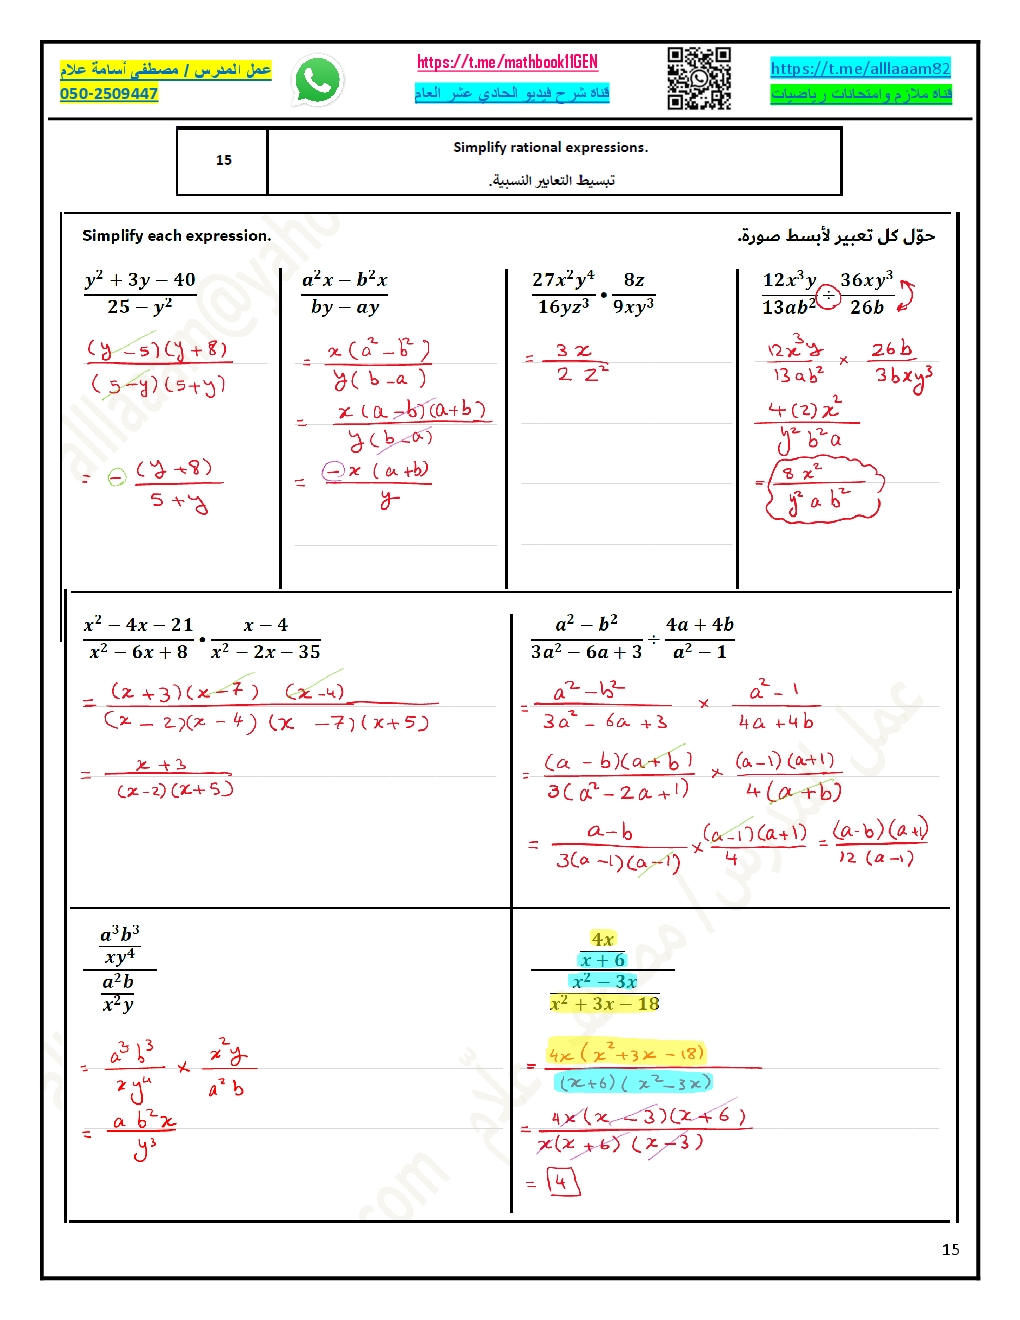 عمل المدرس / مصطفى أسامة علام
050-2509447
https://t.me/mathbook11GEN
قناة شرح فيديو الحادي عشر العام
https://t.me/alllaaam82
قناة ملازم وامتحانات رياضيات
15
Simplify rational expressions.
تبسيط التعابير النسبية.
Simplify each expression.
حوّل كل تعبير لأبسط صورة.
(y² + 3y − 40)/(25 − y²)
(y − 5)(y + 8)/(5 − y)(5 + y)
= − (y + 8)/(5 + y)
(a²x − b²x)/(by − ay)
= x(a² − b²)/y(b − a)
= x(a − b)(a + b)/y(b − a)
= − x(a + b)/y
27x²y⁴/16yz³ • 8z/9xy³
= 3x/2z²
12x³y/13ab² ÷ 36xy³/26b
12x³y/13ab² × 26b/36xy³
4(2)x²/y²b²a
= 8x²/y²ab²
(x² − 4x − 21)/(x² − 6x + 8) • (x − 4)/(x² − 2x − 35)
= (x + 3)(x − 7) (x − 4)/(x − 2)(x − 4)(x − 7)(x + 5)
= (x + 3)/(x − 2)(x + 5)
(a² − b²)/(3a² − 6a + 3) ÷ (4a + 4b)/(a² − 1)
= (a² − b²)/(3a² − 6a + 3) × (a² − 1)/(4a + 4b)
= (a − b)(a + b)/3(a² − 2a + 1) × (a − 1)(a + 1)/4(a + b)
= (a − b)/3(a − 1)(a − 1) × (a − 1)(a + 1)/4 = (a − b)(a + 1)/12(a − 1)
(a³b³/xy⁴)/(a²b/x²y)
= a³b³/xy⁴ × x²y/a²b
= ab²x/y³
(4x/(x + 6))/((x² − 3x)/(x² + 3x − 18))
= 4x(x² + 3x − 18)/(x + 6)(x² − 3x)
= 4x(x − 3)(x + 6)/x(x + 6)(x − 3)
= 4
15